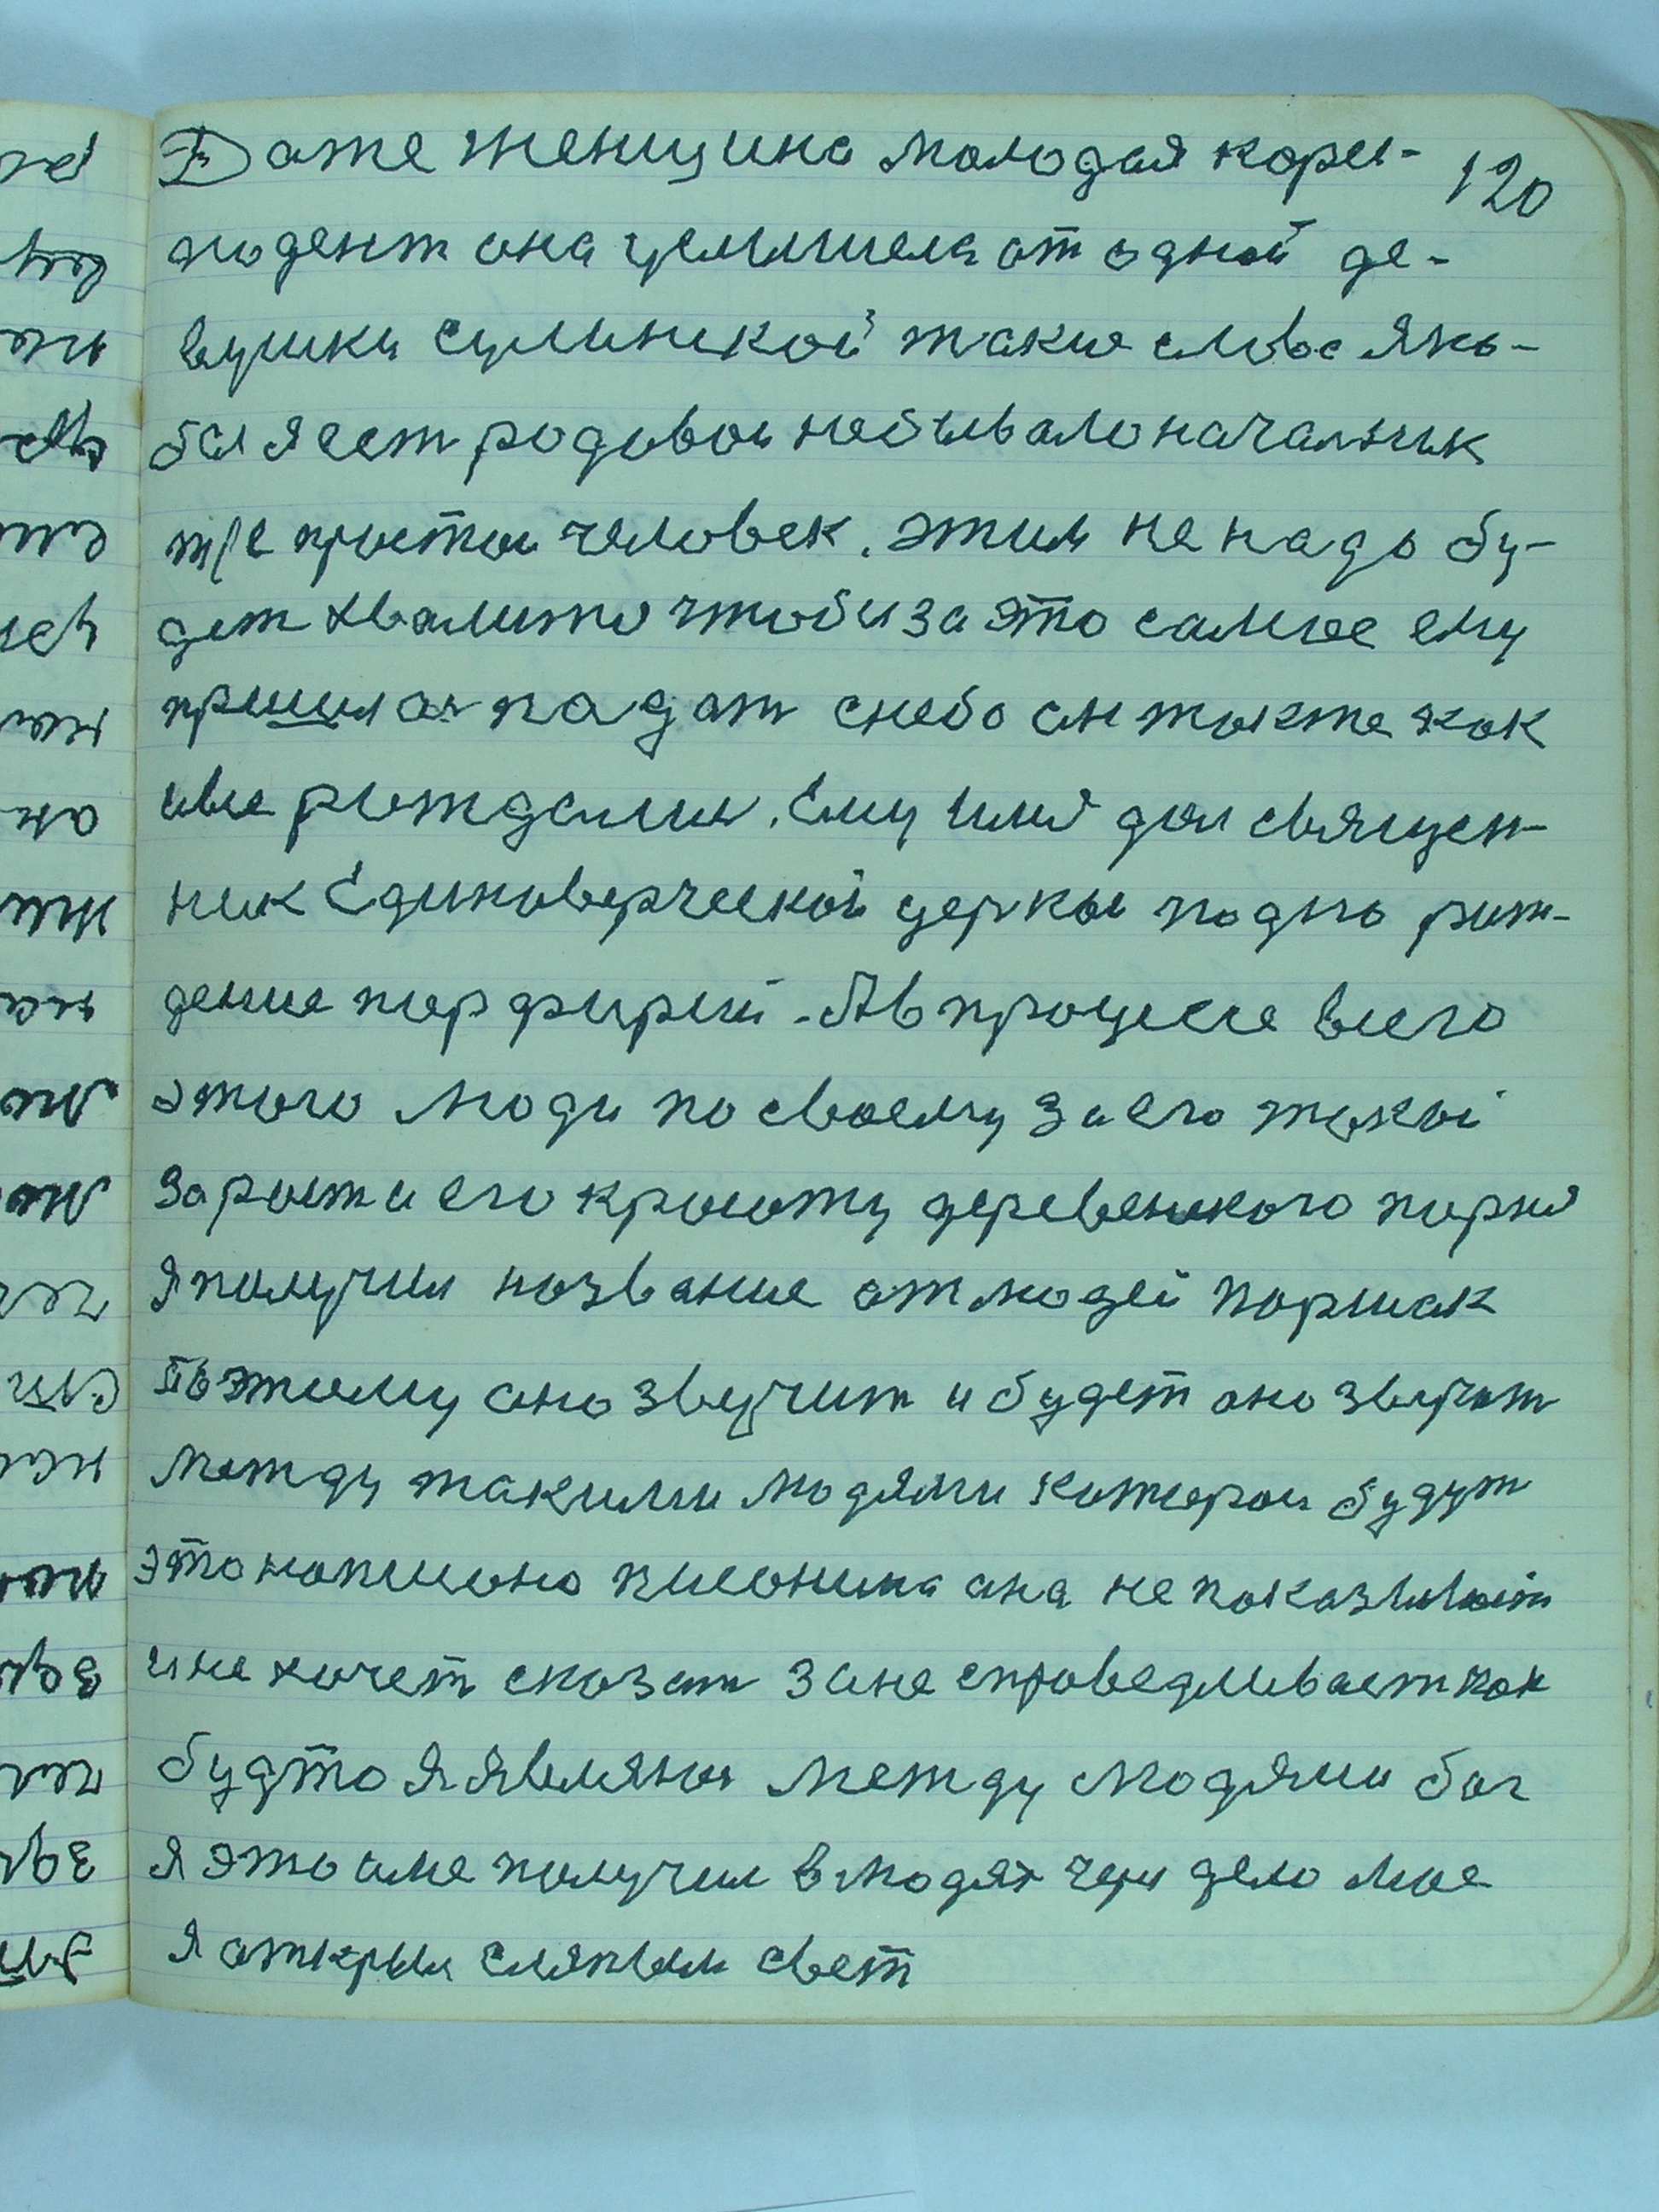 Даже женщина молодая корес- 120
подент она услышела от одной де-
вушки сулинской такие слова Яко-
бы я ест родовои небывало начальник
т/е простои человек. этим не надо бу-
дет хвалитю чтобы за это самое ему
пришлос падат снебо он также как
ивсе рождение. Ему имя дал священ-
ник Единоверческой церквы по дню рож-
дение порфирий. Ав процессе всего
этого люди по своему за его такой
за рост и его кросоту деревенского парня
я получил название от людей поршак
Поэтому оно звучит и будет оно звучат
между такими людями которои будут
это написоно писонина она не показывает
ине хочет сказат за не справедливает как
будто я являюся между людями бог
я это име получил в людях через дело мое
я открыл сляпым свет